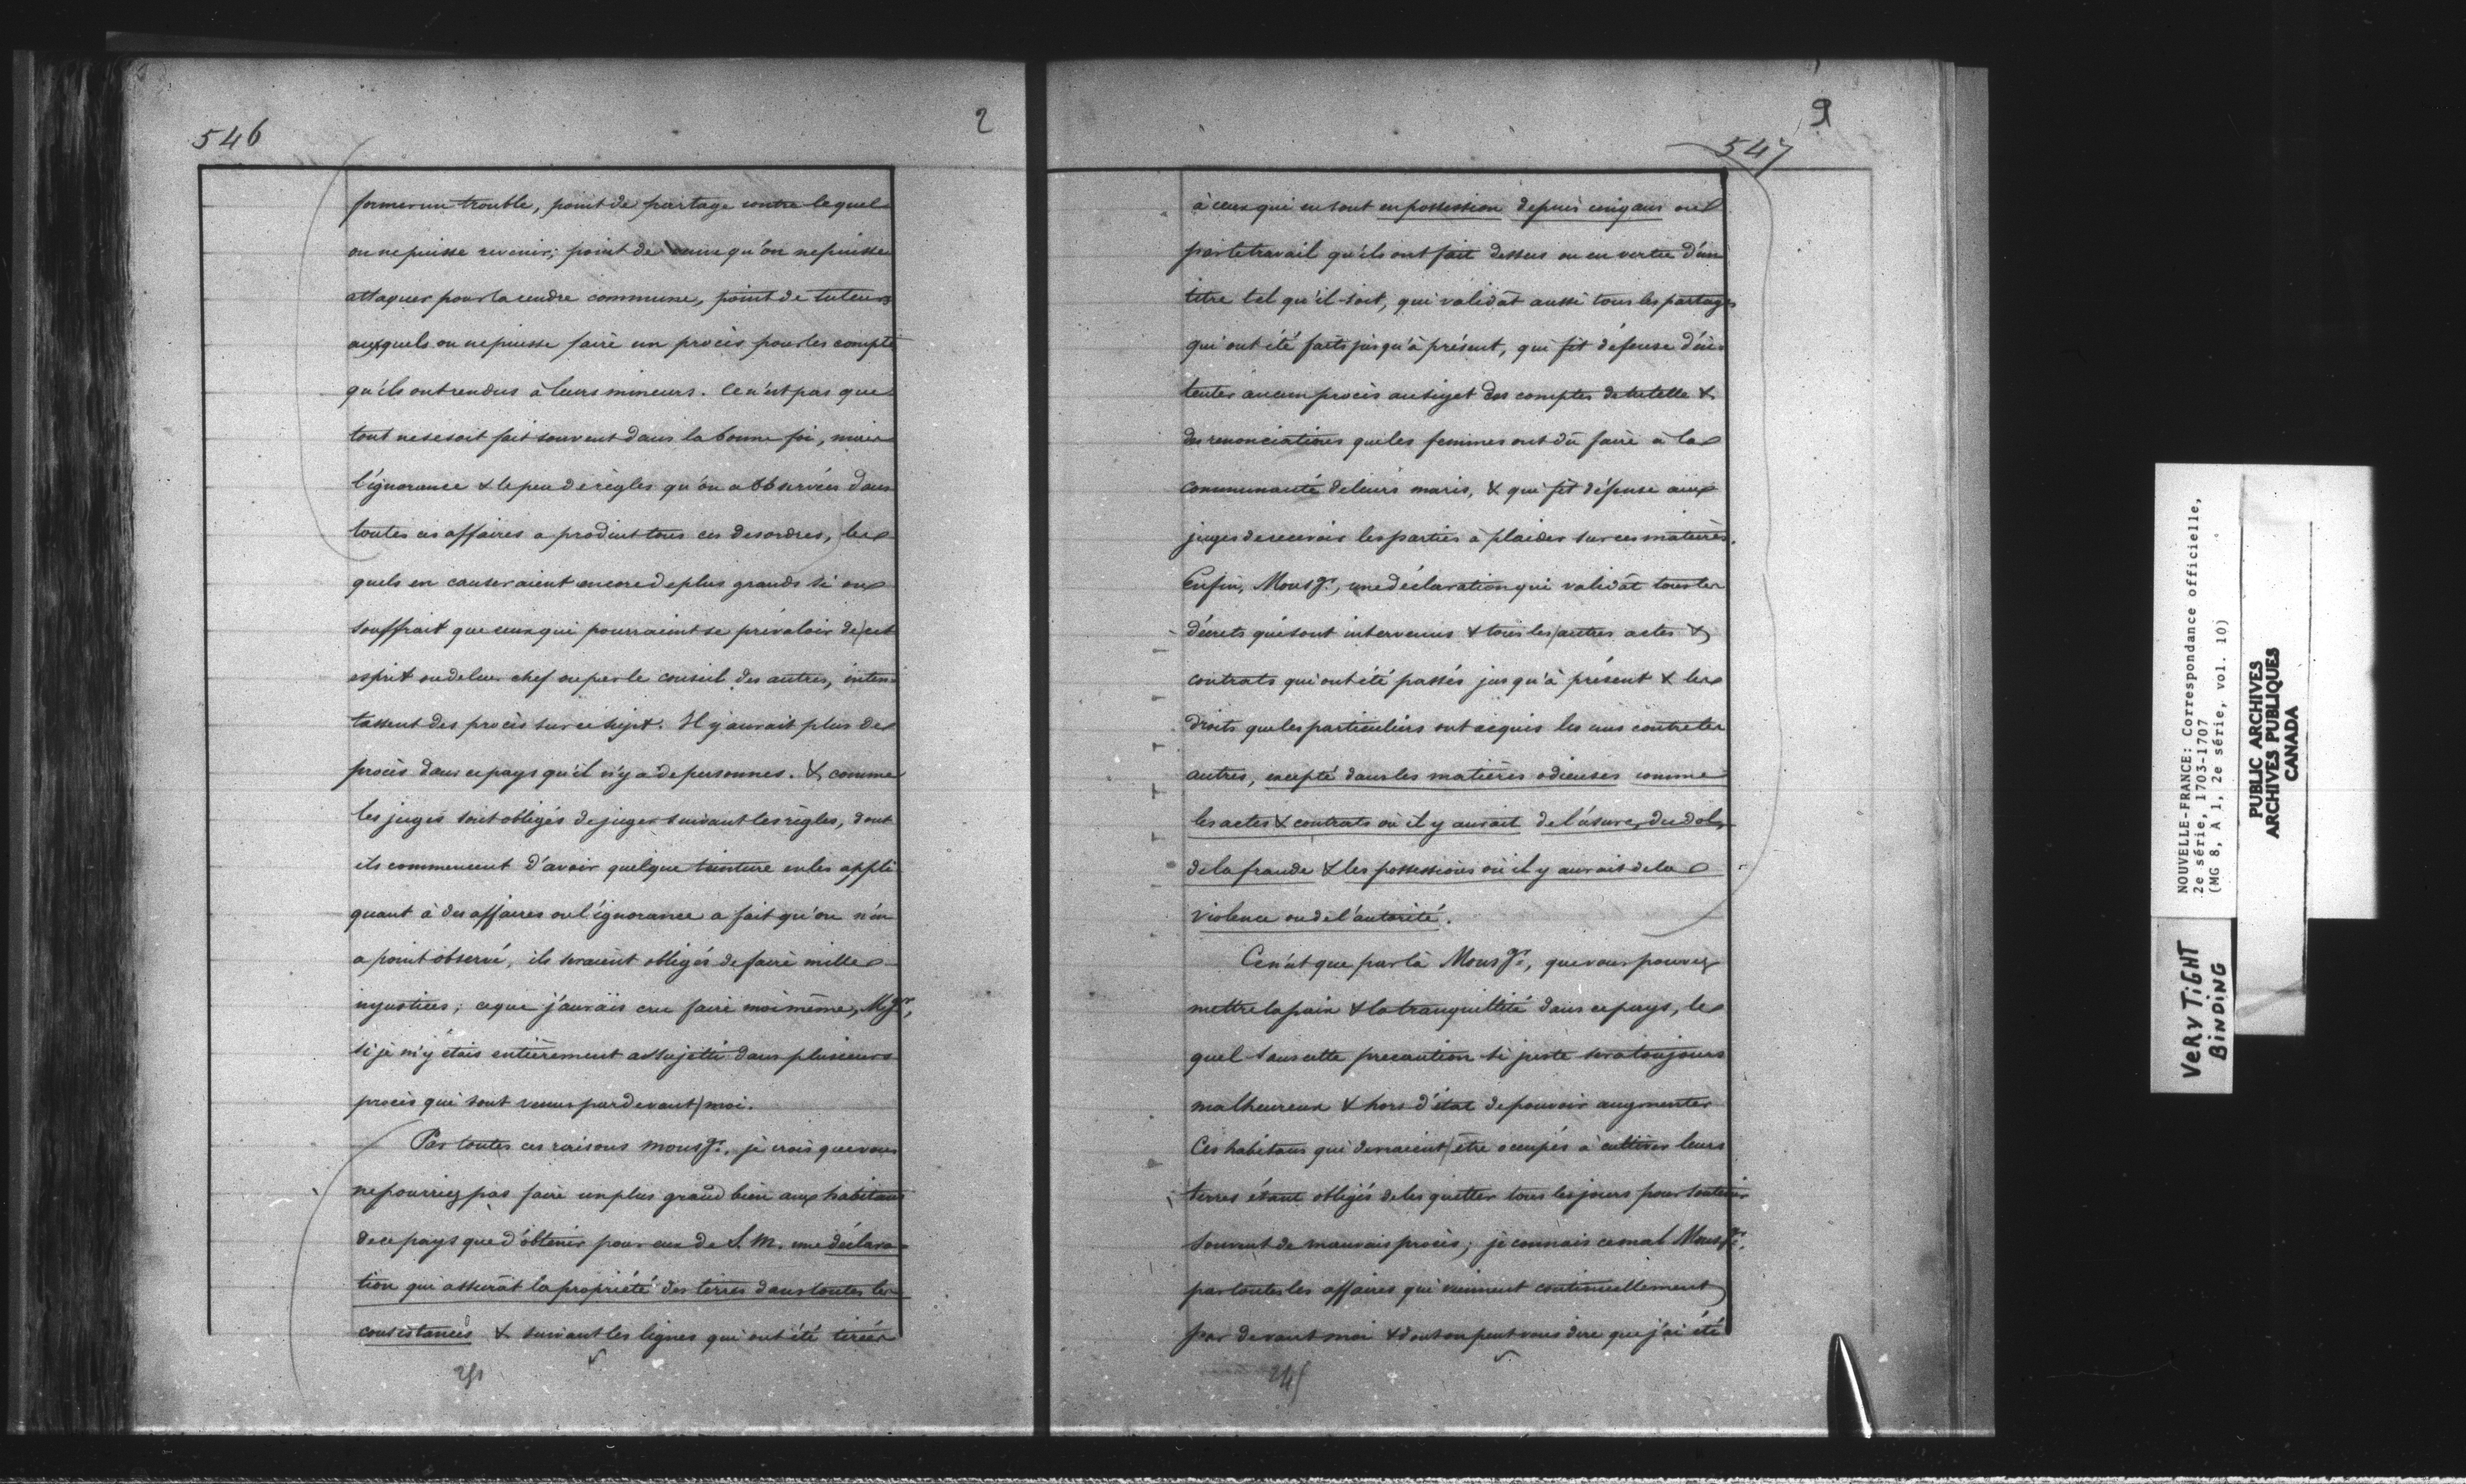 546
2
former un trouble, point de partage contre lequel
on ne puisse revenir; point de veuve qu'on ne puisse
attaquer pour la rendre commune, point de tuteurs
auxquels on ne puisse faire un procès pour les compte
qu'ils ont rendus à leurs mineurs. Ce n'est pas que
tout ne se soit fait souvent dans la bonne foi, mais
l'ignorance & le peu de règles qu'on a observées dans
toutes ces affaires a produit tous ces desordres, les
quels en causeraient encore de plus grands si on
souffrait que ceux qui pourraient se prévaloir de cet
esprit ou de leur chef ou par le conseil des autres, inten-
tassent des procès sur ce sujet. Il y aurait plus de
procès dans ce pays qu'il n'y a de personnes. & comme
les juges sont obligés de juger suivant les règles, dont
ils commencent d'avoir quelque teinture en les appli
quant à des affaires où l'ignorance a fait qu'on n'en
a point observé, ils seraient obligés de faire mille
injustices; ce que j'aurais cru faire moi même, Mgr,
si je m'y étais entièrement assujetti dans plusieurs
procès qui sont venus par devant moi.
Par toutes ces raisons monsgr., je crois que vous
ne pourriez pas faire un plus grand bien aux habitans
de ce pays que d'obtenir pour eux de S. M. une déclara-
tion qui assurât la propriété des terres dans toutes les
consistances & suivant les lignes qui ont été tirées
547
à ceux qui en sont en possession depuis cinq ans ou
par le travail qu'ils ont fait dessus ou en vertu d'un
titre tel qu'il soit, qui validât aussi tous les partages
qui ont été faits jusqu'à présent, qui fit défense d'in-
tenter aucun procès au sujet des comptes de tutelle &
des renonciations que les femmes ont dû faire à la
communauté de leurs maris, & qui fit défense aux
juges de recevoir les parties à plaider sur ces matières.
Enfin, Monsgr., une déclaration qui validât tous les
décrets qui sont intervenus & tous les autres actes &
contrats qui ont été passés jusqu'à présent & les
droits que les particuliers ont acquis les uns contre les
autres, excepté dans les matières odieuses comme
les actes & contrats où il y aurait de l'usure, du dol,
de la fraude & les possessions où il y aurait de la
violence ou de l'autorité.
Ce n'est que par là Monsgr., que vous pouvez
mettre la paix & la tranquillité dans ce pays, le
quel sans cette precaution si juste sera toujours
malheureux & hors d'état de pouvoir augmenter
Ces habitans qui devraient être occupés à cultiver leurs
terres étant obligés de les quitter tous les jours pour soutenir
souvent de mauvais procès; je connais ce mal Monsgr.
par toutes les affaires qui viennent continuellement
par devant moi & dont on peut vous dire que j'ai été
NOUVELLE-FRANCE: Correspondance officielle,
2e série, 1703-1707
(MG 8, A 1, 2e série, vol. 10)
PUBLIC ARCHIVES
ARCHIVES PUBLIQUES
CANADA
VERY TIGHT
BINDING